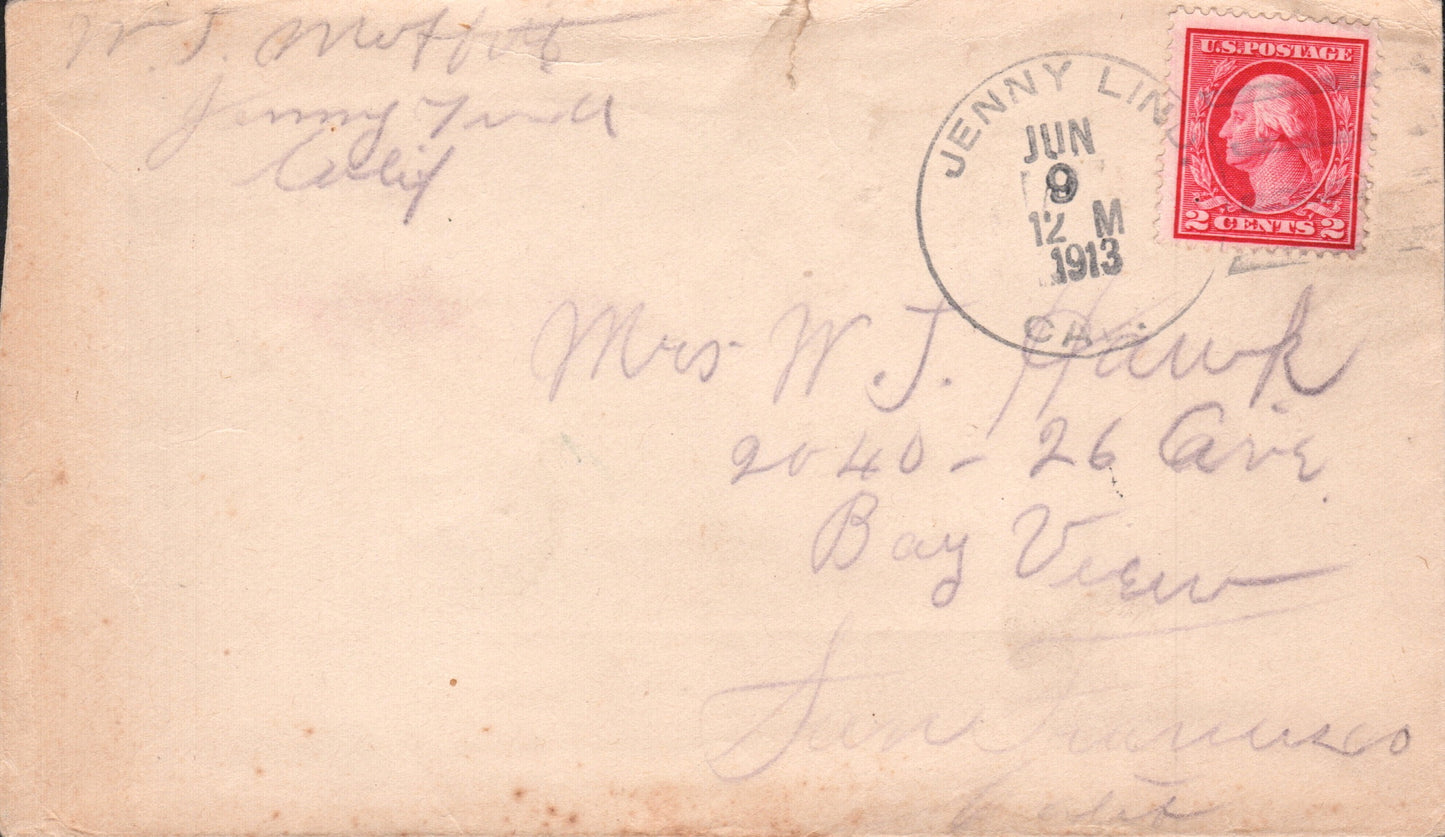 W. J. Moffott
Jenny Lind
Calif
JENNY LIND
JUN
9
12 M
1913
CAL.
U.S. POSTAGE
2 CENTS 2
Mrs W. J. Hawk
2040 - 26 Ave.
Bay View
San Francisco
Calif